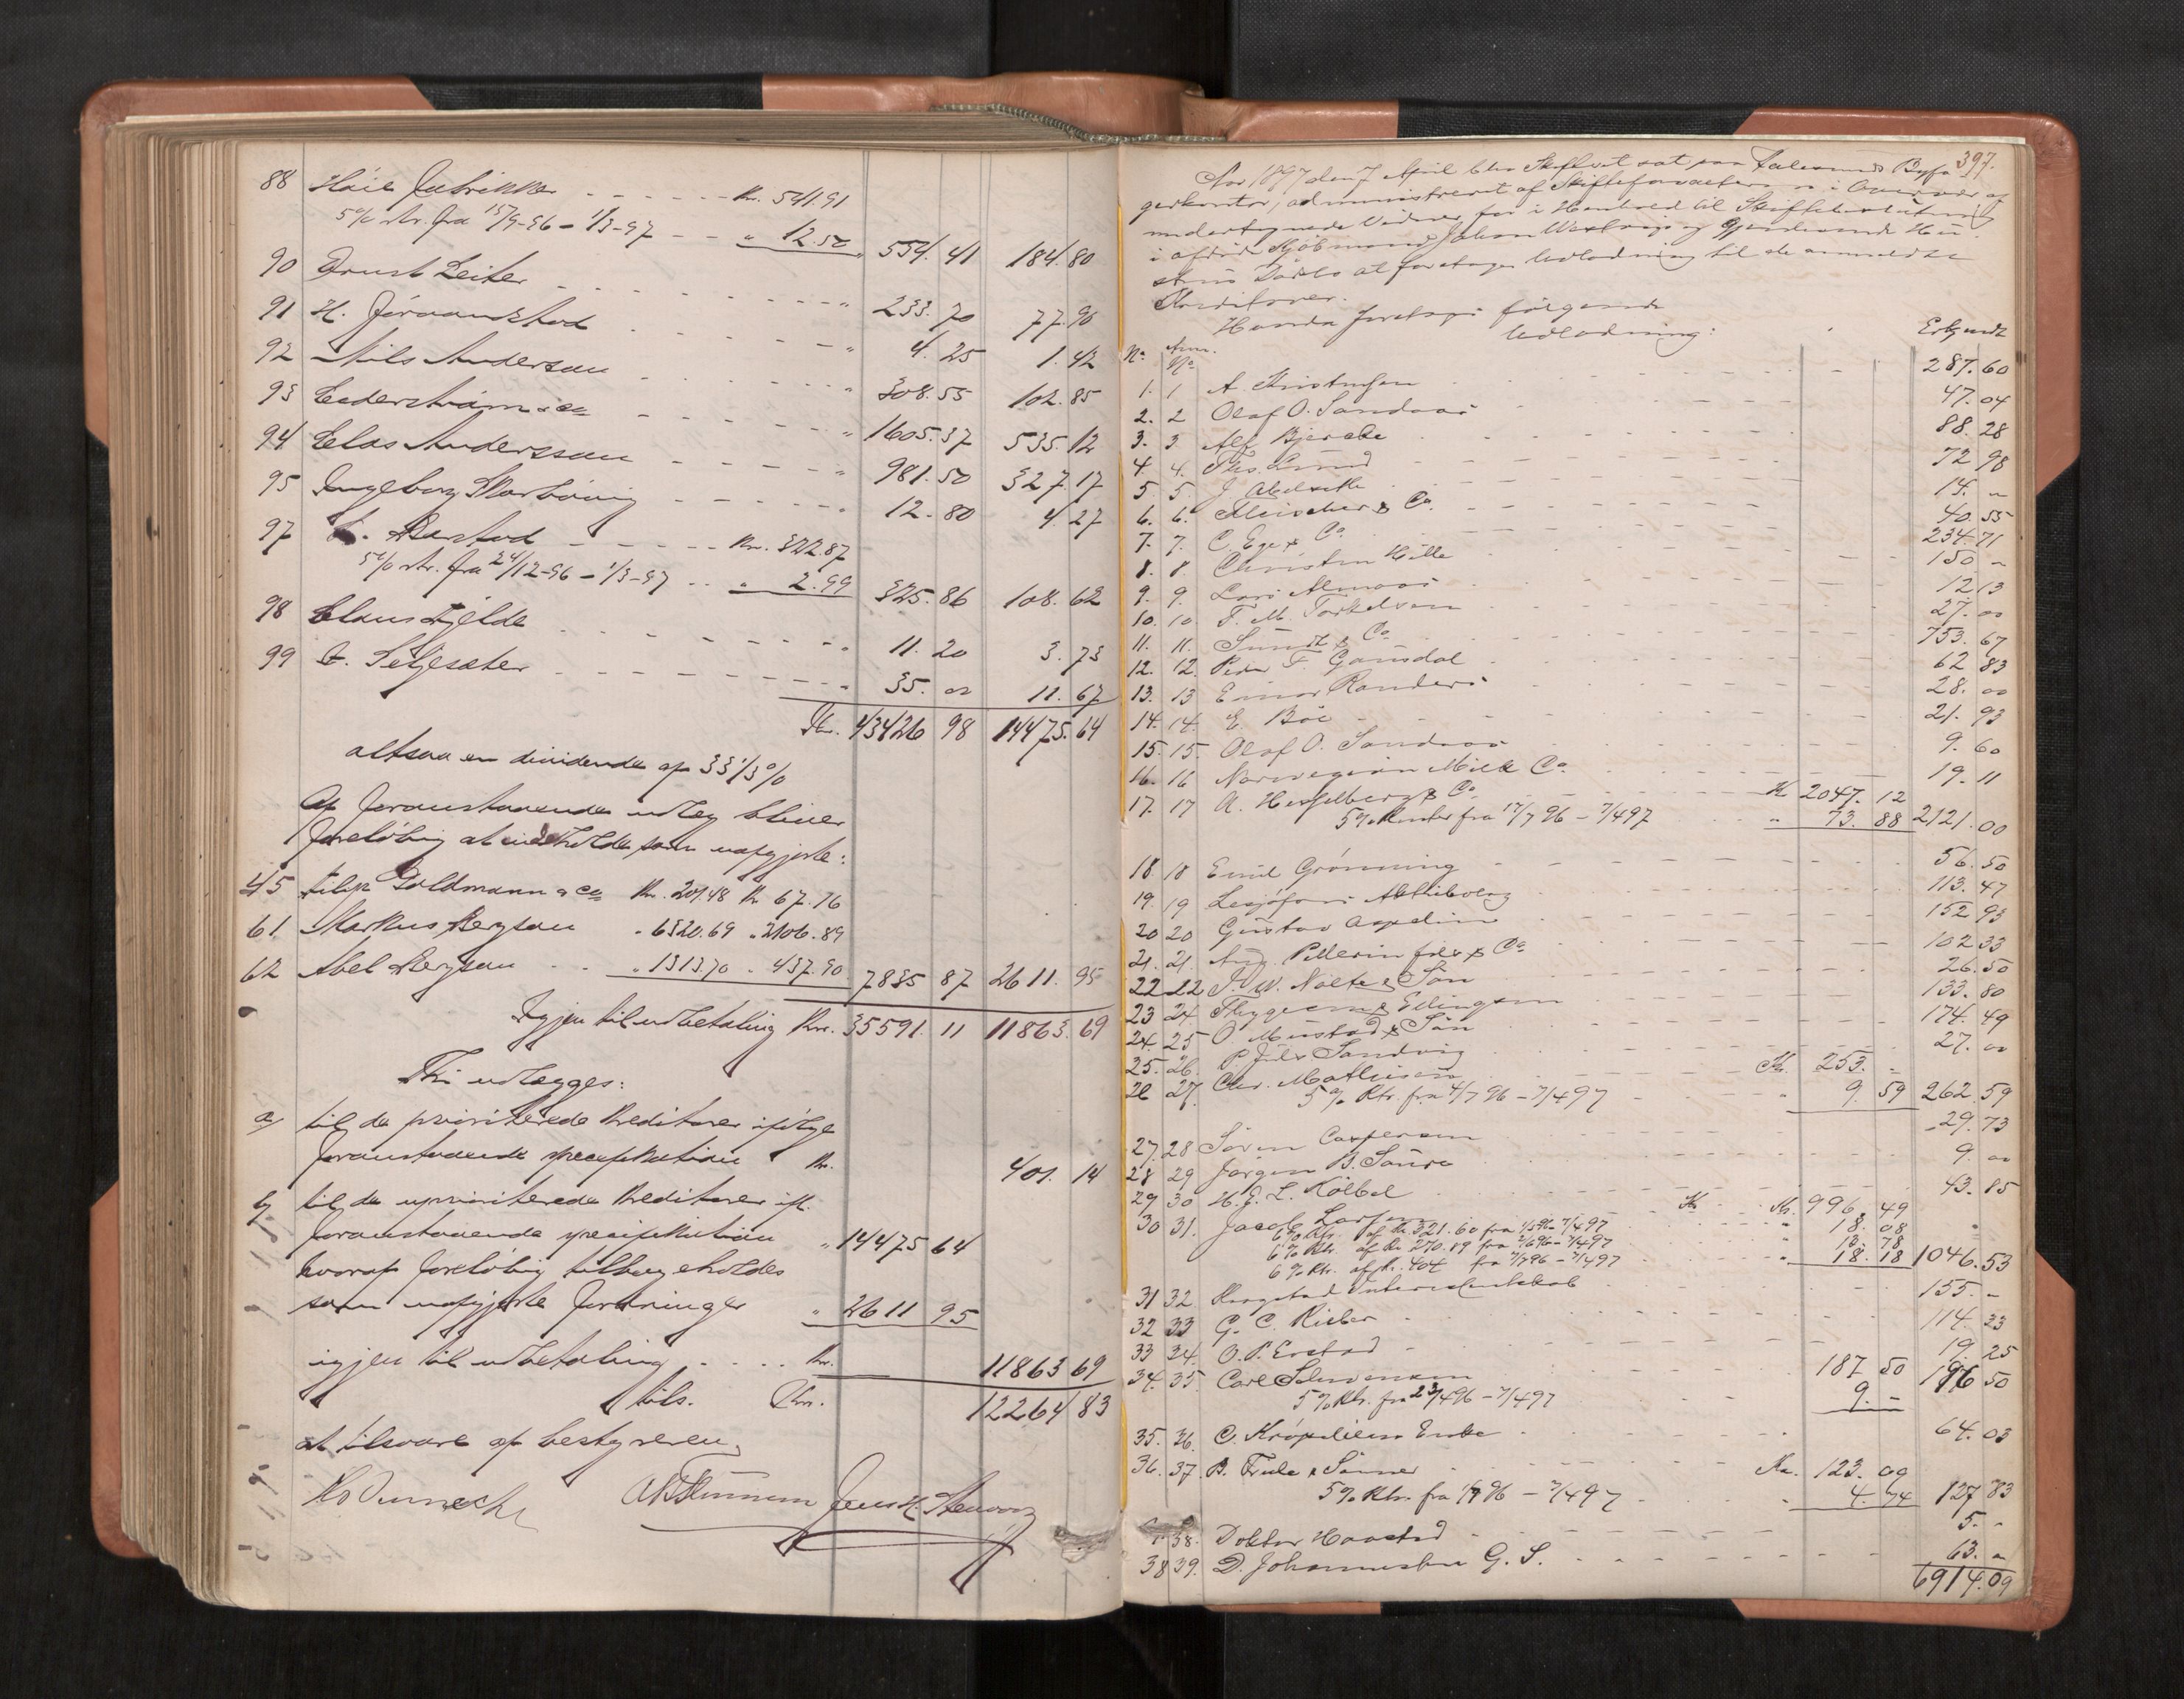 88 Høie Fabrikker - - - - - - Kr. 541.91
5% rtr. fra 15/9-96 - 1/3-97 - - " 12.50 554.41 184.80
90 Ernst Leiter - - - - - - - - " 233.70 77.90
91 H. Jørvanstad - - - - " 4.25 1.42
92 Nils Andersen - - - - - " 308.55 102.85
93 Cederstrøm & Co - - - - - " 1605.37 535.12
94 Claes Anderssan - - - - " 981.50 327.17
95 Ingeborg Skorbøvig - - - - " 12.80 4.27
97 Aarstad - - - - - Kr. 322.87
5% rtr. fra 24/12-96 - 1/3-97 - - " 2.99 325.86 108.62
98 Claus Hjelde - - - - - - " 11.20 3.73
99 C. Seljesæter - - - - - - " 35. oo 11.67
Kr. 43426 98 14475.64
altsaa en dividende af 33 1/3 %
Af foranstaaende udlæg bliver
foreløbig at indeholde som uafgjorte:
45 Filip Goldmann & Co Kr. 201.48 Kr 67.16
61 Markus Bergson " 6320.69 " 2106.89
62 Abel Bergson " 1313.70 " 437.90 7835 87 2611.95
Igjen til udbetaling Kr. 35591.11 11863.69
Thi udlægges:
a) til de prioriterede Kreditorer ifølge
foranstaaende specifikation Kr. 401.14
b) til de uprioriterede Kreditorer ifl.
foranstaaende specifikation " 14475 64
hvoraf foreløbig tilbageholdes
som uafgjorte fordringer " 2611 95
igjen til udbetaling - - - - Kr. 11863 69
tils. Kr. 12264 83
at tilsvare af bestyreren.
Jens H. Stenvaag
397.
Aar 1897 den 7 April blev Skifteret sat paa Aalesunds Byfo
gedkontor, administreret af Skifteforvalteren i Overvær af
undertegnede Vidner, for i Henhold til Skiftebeslutning
i afdøde Kjøbmand Johan og gjenlevende Hu
strus Dødsbo at foretage Udlodning til de anmeldte
Kreditorer.
Handa foretoges følgende
Udlodning:
No Anm. No Erkjendt
1. 1 A. Kristensen - - 287.60
2. 2 Olaf O. Sandaas - - 47.04
3. 3 Alf Bjercke - - 88.28
4. 4. Ths. Lund - - 72 98
5. 5. J. - - 14. -
6. 6. Fleischer & Co. - - 40.55
7. 7. C. Ege & Co - - 234.71
8. 8. Christen Hille - - 150 -
9. 9. Lars Almaas - - 12 13
10. 10 F. M. Torkelsen - - 27. oo
11. 11. Sundt & Co - - 753.67
12. 12. Peder F. Gamsdal - - 62 83
13. 13 Einar Randers - - 28. oo
14. 14. E. Bøe - - 21. 93
15. 15. Olaf O. Sandaas - - 9. 60
16. 16 Norwegian Milk Co. - - 19. 11
17. 17 A. Hesselberg & Co - - K 2047. 12
5% Renter fra 17/7 96 - 7/4 97 " 73. 88 2121. 00
18. 18 Emil Grønning - - 56.50
19. 19 Lesjöfors Aktiebolag - - 113.47
20 20 Gustav Aspelin - - 152 93
21. 21. Aug. Pellerin fils & Co - - 102 33
22 22 J. W. Nolte & Søn - - 26.50
23 24 Thygesen & Edingsen - - 133. 80
24 25 O. Mustad & Søn - - 174. 49
25. 26. P. Juls Sandvig - - 27. oo
26 27. Chr. Mathiesen - - Kr. 253. -
5% Rtr. fra 4/7 96 - 7/4 97 " 9. 59 262.59
27. 28 Søren Caspersen - - 29. 73
28 29 Jørgen B. Saure - - 9. oo
29 30 H. E. L. Kölbel - - 43. 85
30 31. Jacob Larsen - - Kr. 996. 49
6% Rtr. af Kr 321.60 fra 1/5 96 - 7/4 97 " 18. 08
6% Rtr. af Kr 270.89 fra 2/6 96 - 7/4 97 " 13. 78
6% Rtr. af Kr. 404 fra 7/7 96 - 7/4 97 " 18. 18 1046.53
31 32 Ringstad Interessentskab - - 155. -
32 33 G. C. Rieber - - 114. 23
33 34. O. P. Erstad - - 19. 25
34. 35. Carl Schwensen - - 187 50 196 50
5% Rtr. fra 23/4 96 - 7/4 97 9. -
35. 36. C. Krøpeliens Enke - - 64. 03
36. 37. B. Friele & Sønner - - Kr. 123. 09
5% Rtr. fra 1/7 96 - 7/4 97 " 4. 74 127 83
38. Doktor Haastad - - 5. -
38 39. D. Johannessen G. S. - - - 63. -
6914.09